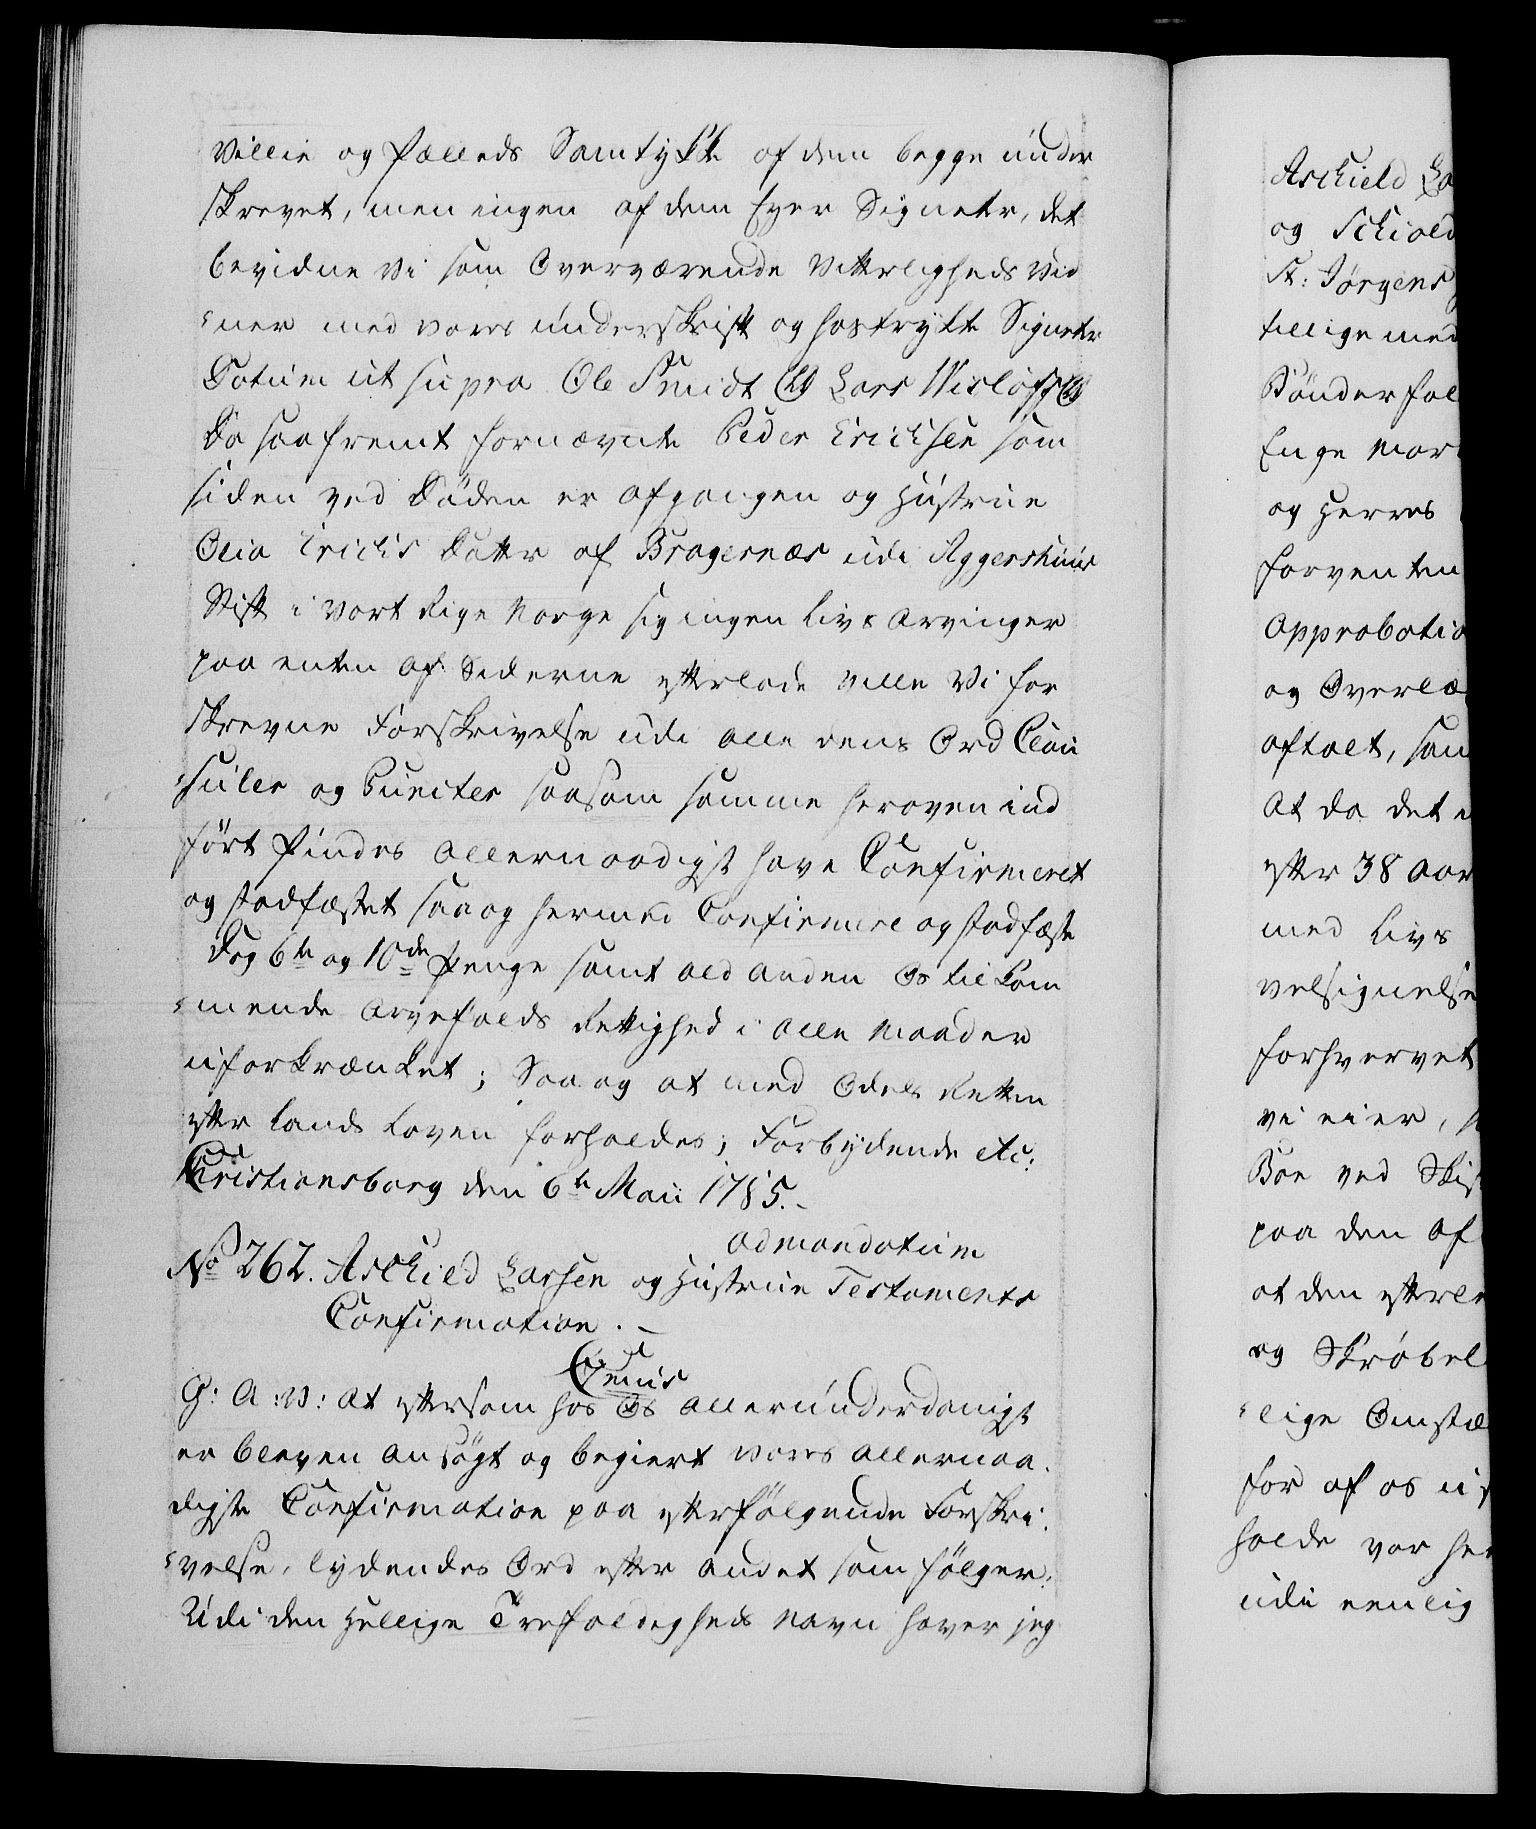 Villie og Fælleds Samtykke af dem begge under
skrevet, men ingen af dem Eyer Signeter, det
bevidne Vi som Overværende Vitterligheds Vid
ner med vores underskrift og hostrykte Signeter
Datum ut supra Ole Smidt (LS) Lars Nisløff (LS)
Da saafremt fornævnte Peder Erichsen som
siden ved Døden er afgangen og Hustrue
Olia Erichs Datter af Bragernæs udi Aggershuus
Stift i Vort Rige Norge sig ingen Livs Arvinger
paa enten af Siderne efterlade Ville Vi for
skrevne Forskrivelse udi alle dens Ord Clau
suler og Puncter saasom samme heroven ind
ført findes allernaadigst have Confirmeret
og stadfæstet saa og hermed Confirmere og stadfæste
Dog 6te og 10de Penge samt ald anden Os tilkom
mende Arvefalds Rettighed i alle Maader
uforkrænket; Saa og at med Odels Retten
efter Lands Loven forholdes; Forbydende etc:
Christiansborg den 6te Maii 1785.
ad mandatum
No 262. Aschield Larsen og Hustrue Testaments
Confirmation.
G: A: V: At eftersom hos Os allerunderdanigst
er bleven ansøgt og begiert vores allernaa
digste Confirmation paa efterfølgende Forskri
velse, lydendes Ord efter andet som følger:
Udi den Hellige Trefoldigheds Navn haver jeg
Aschield La
og Schiold
St: Jørgens
tillige med
Bønderfol
Enge Mar
og Herres
forventen
Approbatio
og Overlæ
aftalt, som
At da det
efter 38 Aar
med Livs
velsignelse
forhvervet
vi eier,
Boe ved Skif
paa den af
at den efterle
og Skrøbel
lige Omstæ
for af os
holde vor
udi eenlig